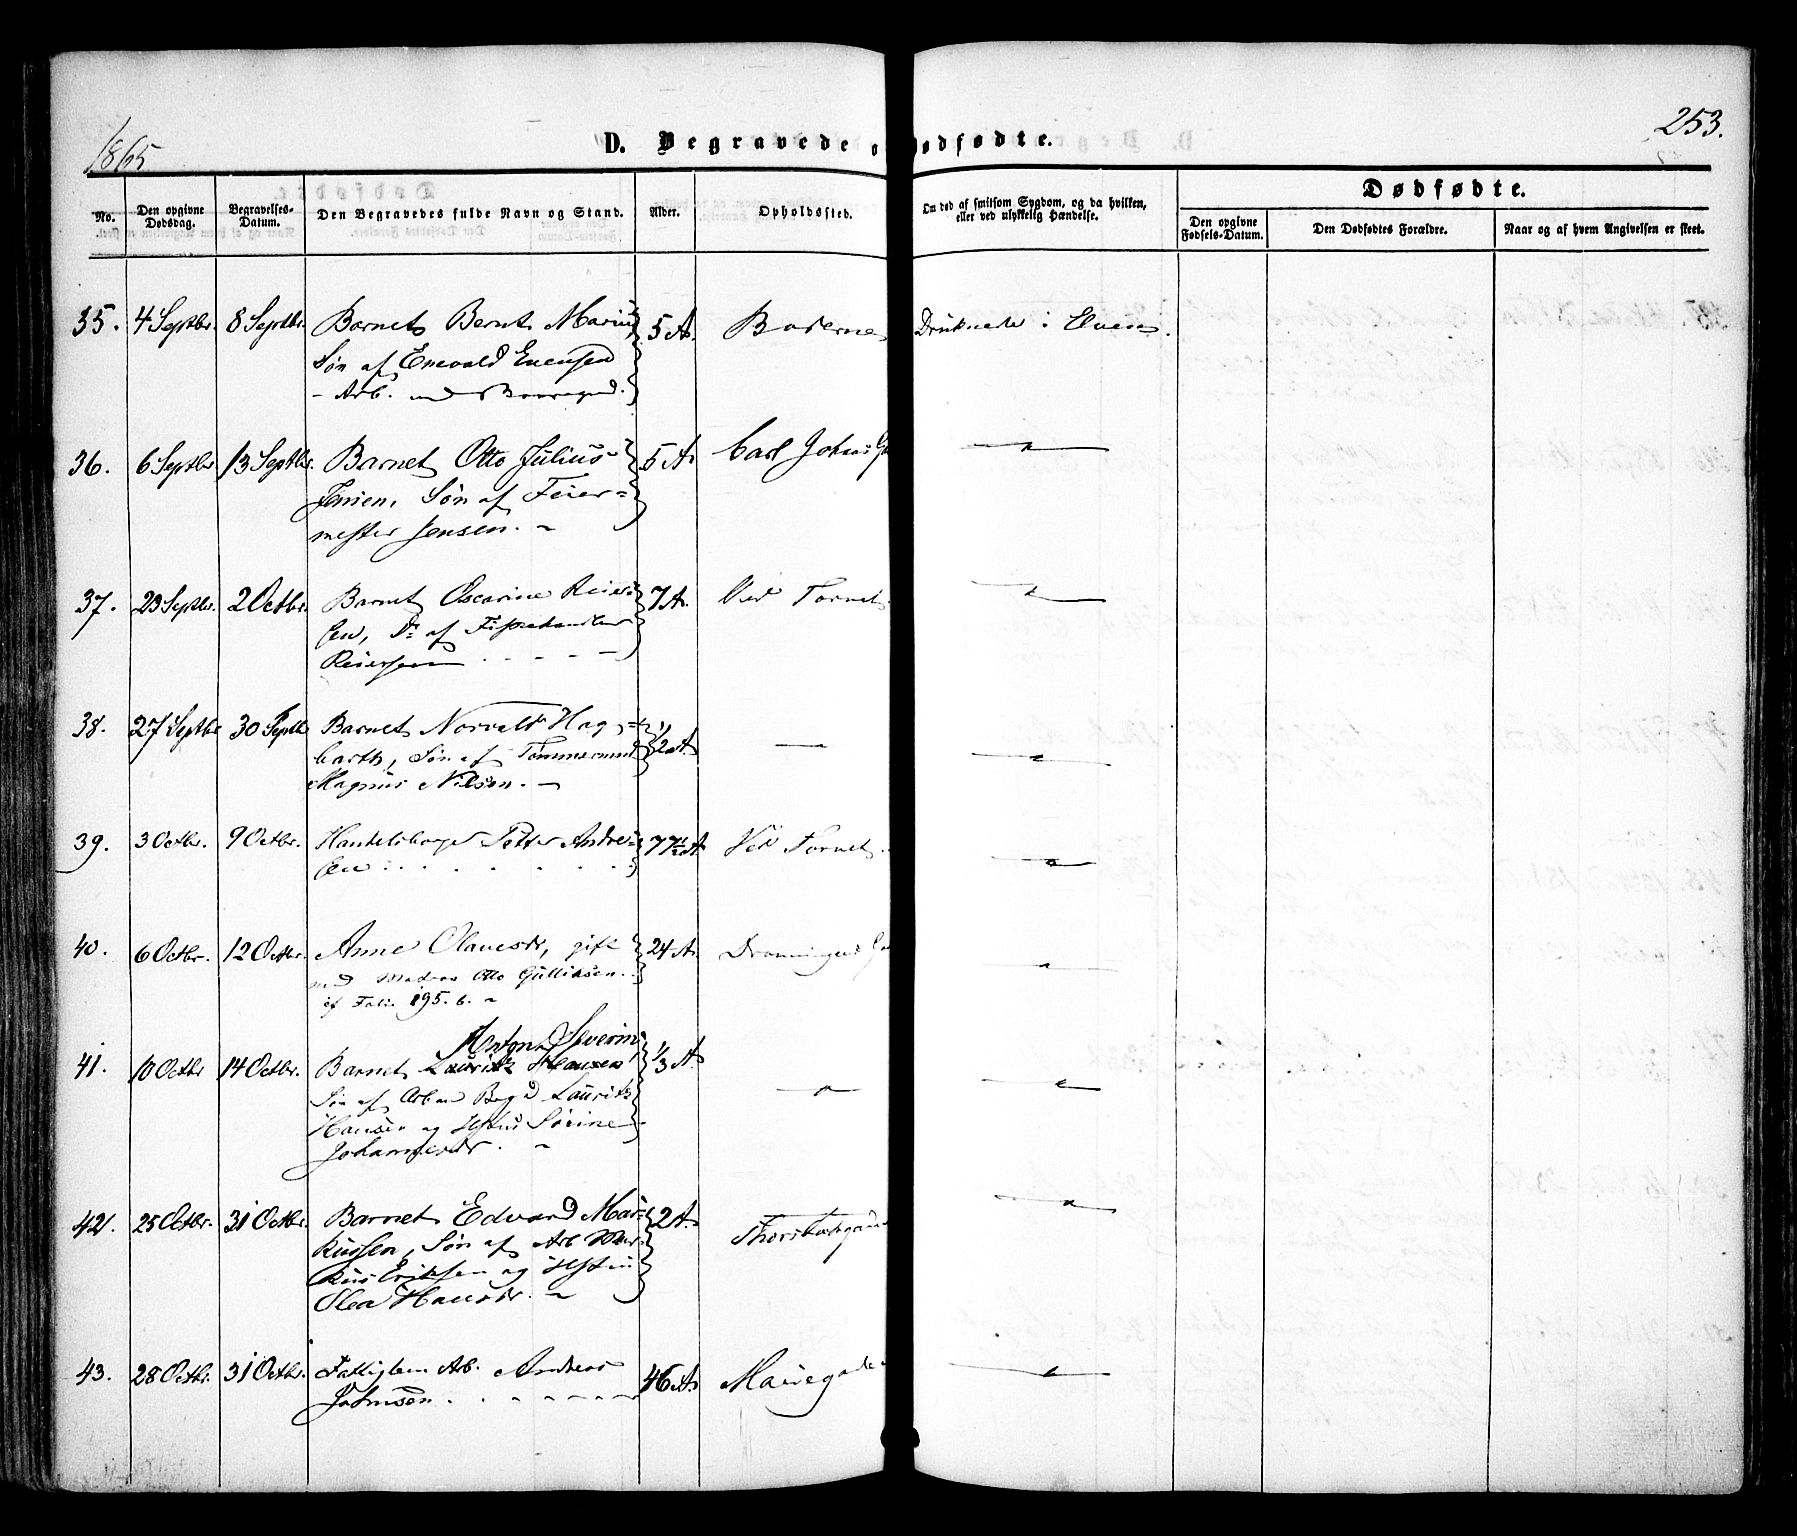 1865
253.
D. Begravede o
ødfødte.
No.
Den opgivne Dødsdag.
Begravelses-Datum.
Den Begravedes fulde Navn og Stand.
Alder.
Opholdssted.
Om død af smitsom Sygdom, og da hvilken, eller ved ulykkelig Hændelse.
Dødfødte.
Den opgivne Fødsels-Datum.
Den Dødfødtes Forældre.
Naar og af hvem Angivelsen er skeet.
35. 4 Septbr. 8 Septbr. Barnet Bernt Marius 5 A. Druknede i Elven.
Søn af Enevald Evensen
- Arb.
36. 6 Septbr. 13 Septbr. Barnet Otto Julius 5 A. Carl Johans G
Jensen, Søn af Feier=
mester Jensen. -
37. 23 Septbr. 2 Octbr. Barnet Oscarine Reier= 7 A. Ved Torvet
sen, Dr af Fiskehandler
Reiersen
38. 27 Septbr 30 Septb Barnet Norvald Hag= 1/2 A. —
barth, Søn af Tømmermand
Magnus Nilsen. -
39. 3 Octbr. 9 Octbr. Handelsborger Petter Andre= 77 1/2 A Ved Torvet.
sen
40. 6 Octbr. 12 Octbr. Anne Olavesdr, gift 24 A. Dronningens Ga
md Madros Otto Gulliksen.
cf Folio 195. 6. -
Anton Severin
41. 10 Octbr 14 Octbr. Barnet Lauritz Hansen 1/3 A.
Søn af Arb Lauritz
Hansen og Hustru Sørine
Johannesdr. -
42. 25 Octbr. 31 Octbr. Barnet Edvard Mar= 2 A.
kussen, Søn af Arb Mar=
kus Eriksen og Hustru
Olea Hansdr. -
43. 28 Octbr. 31 Octbr. Fattiglem Arb. Andreas 46 A.
Johnsen.